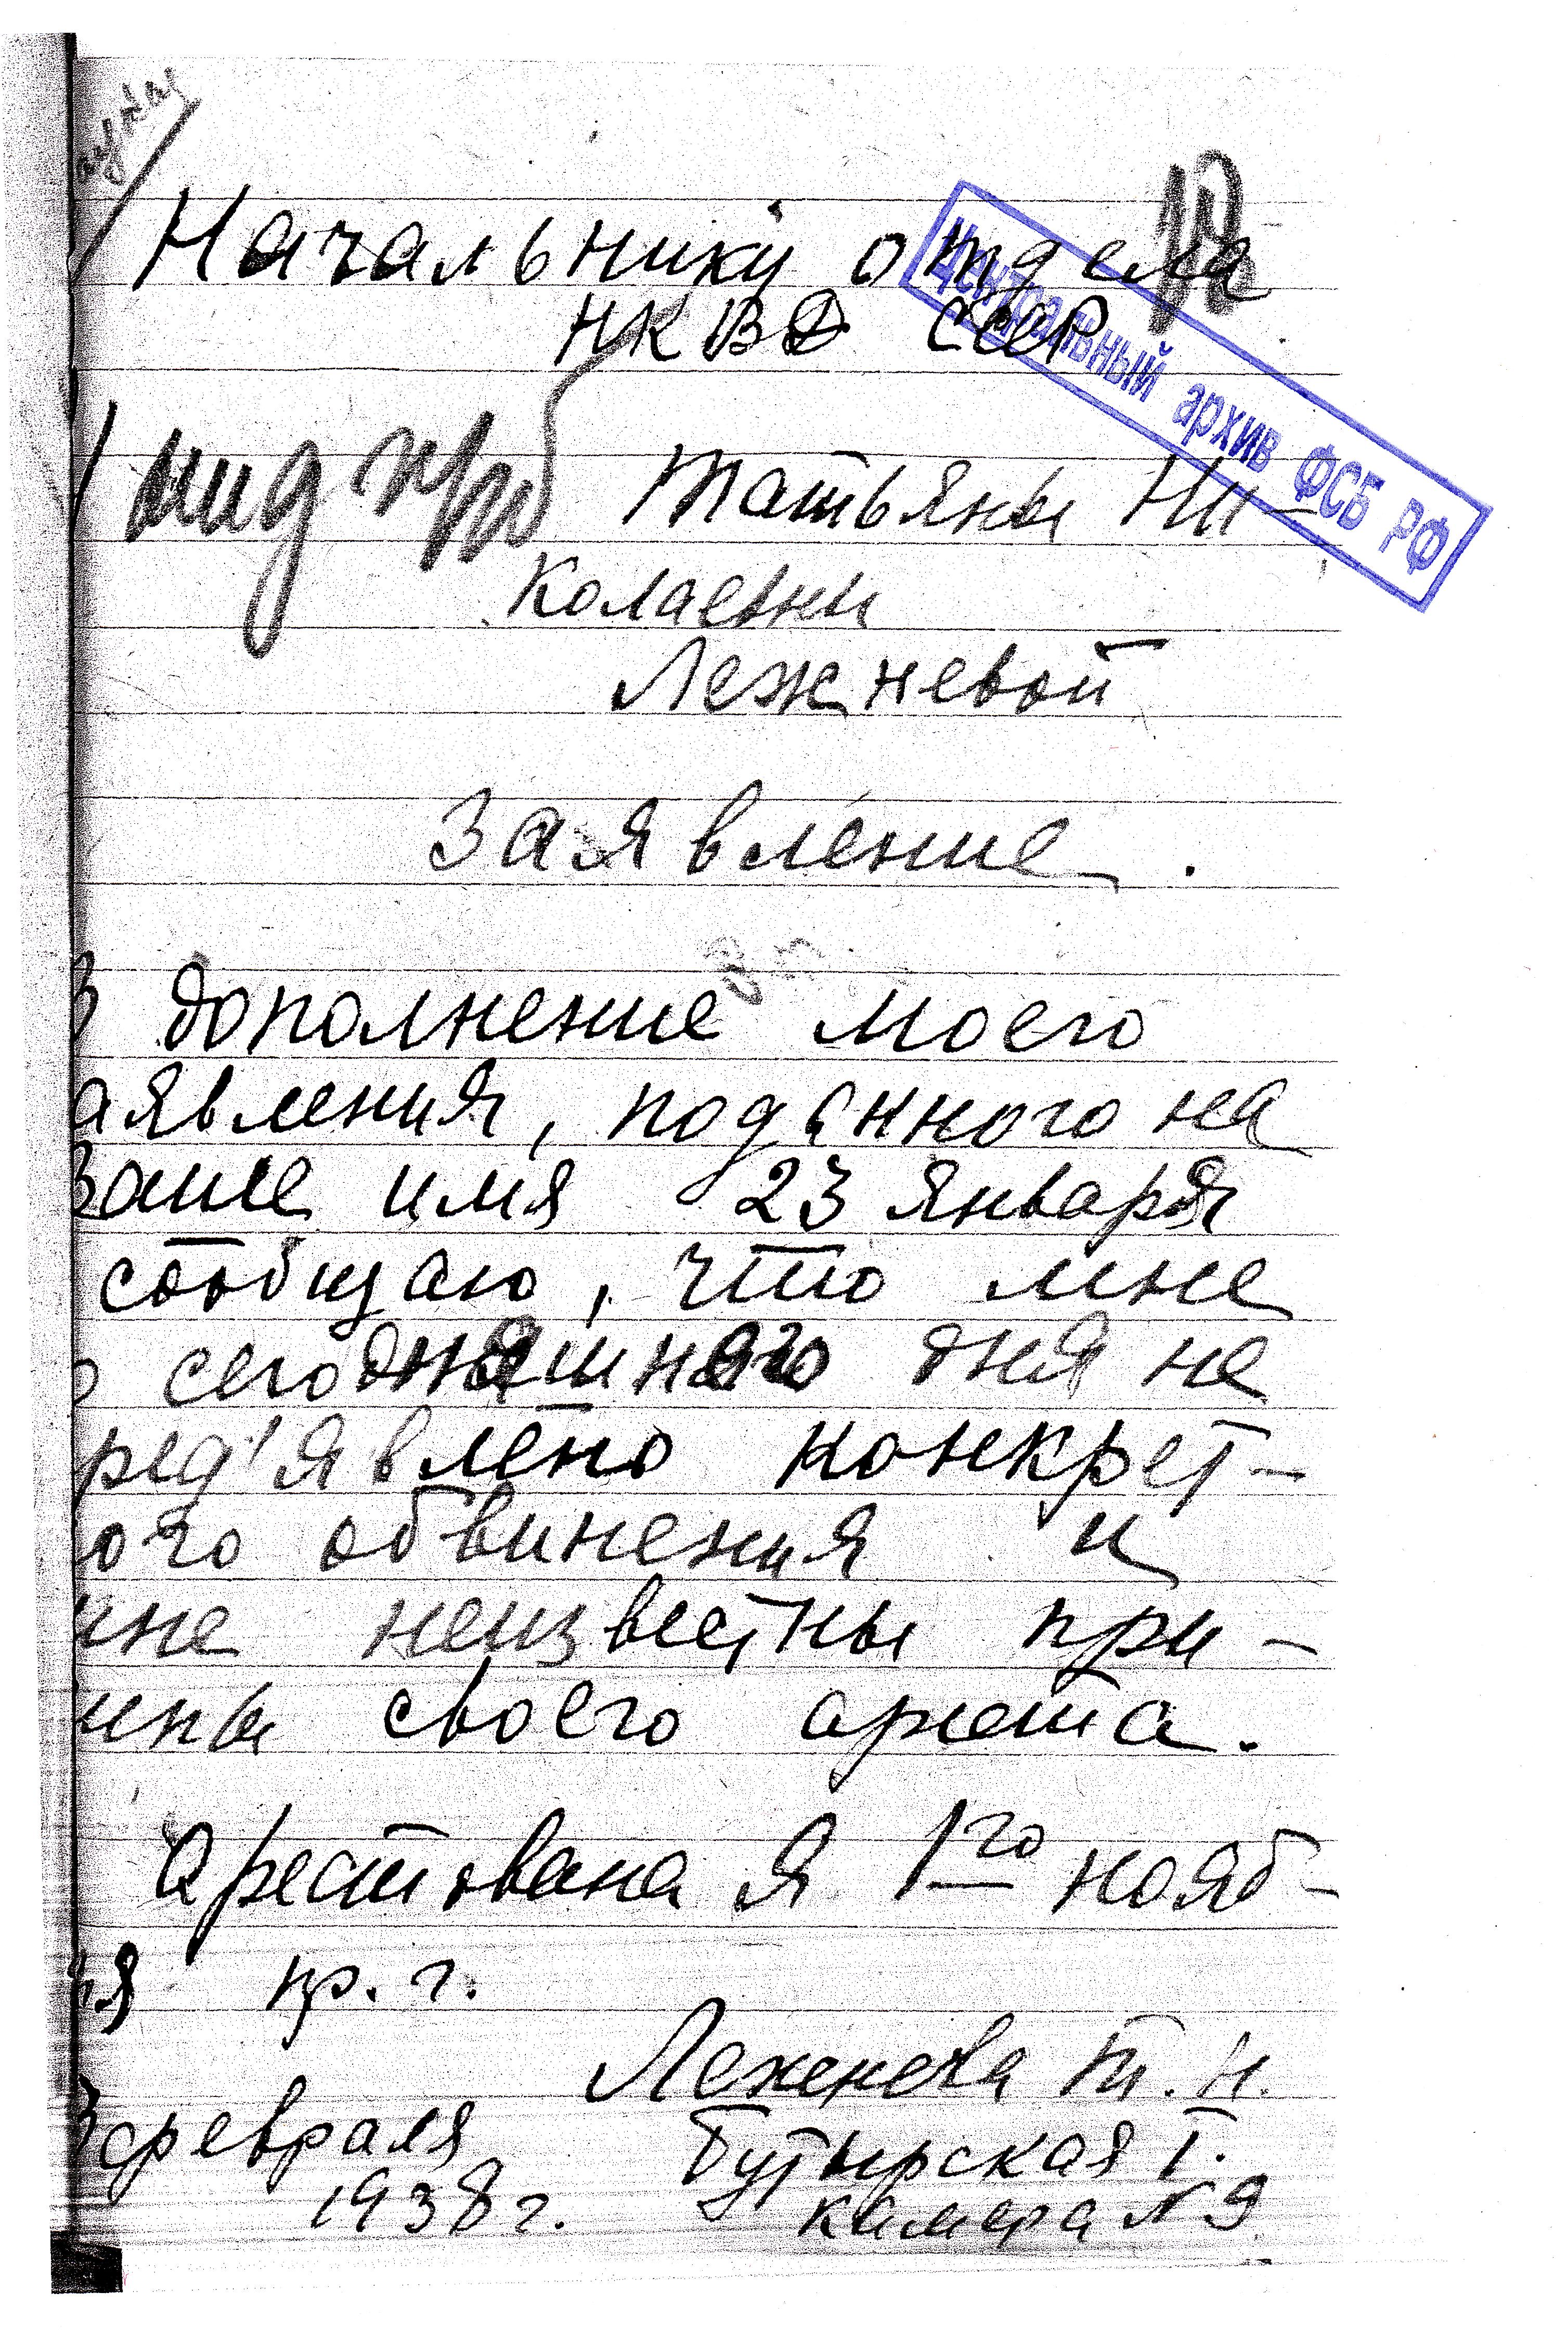 Начальнику отдела
НКВД СССР
Центральный архив ФСБ РФ
Татьяны Ни-
колаевны
Лежневой
Заявление.
В дополнение моего
аявления, поданного на
Ваше имя 23 января
сообщаю, что мне
о сегодняшнего дня не
ред'явлено конкрет-
ого обвинения и
мне неизвестны при-
ины своего ареста.
Арестована я 1го нояб-
ря пр. г.
Лежнева Т. Н.
февраля Бутырская Т.
1938 г. камера N 9